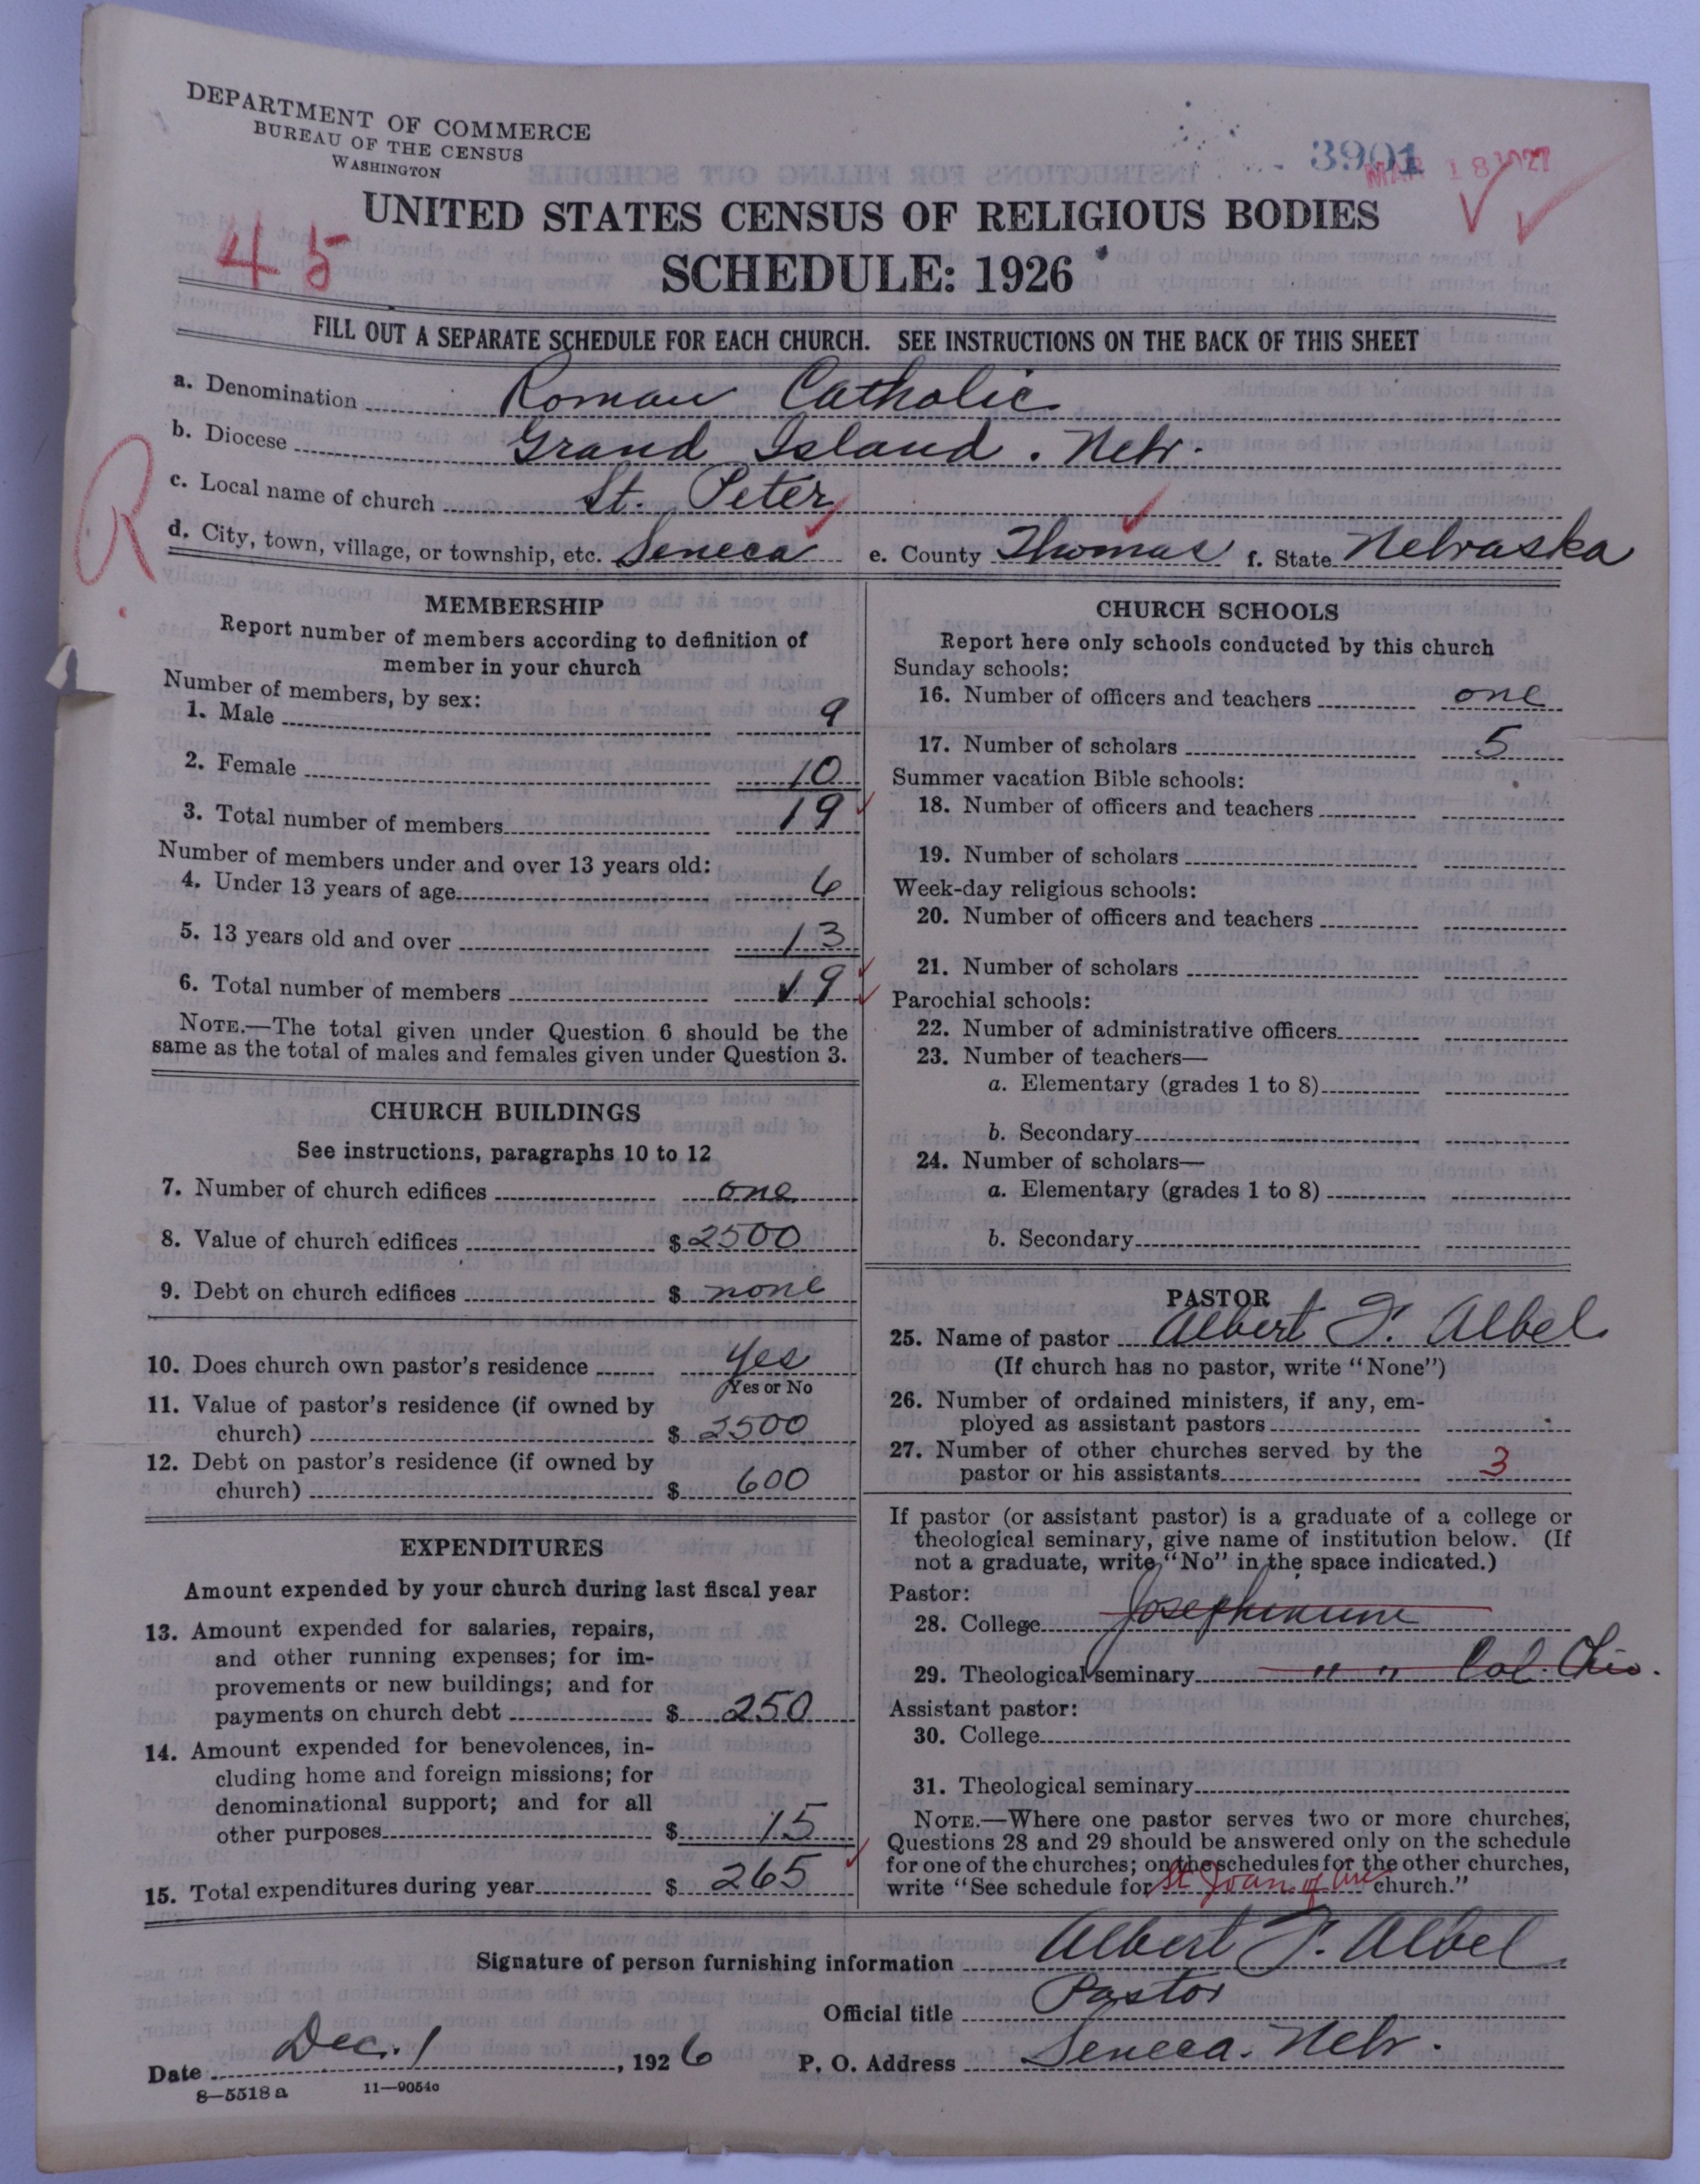 DEPARTMENT OF COMMERCE
BUREAU OF THE CENSUS
WASHINGTON
3901
MAR 18 1927
UNITED STATES CENSUS OF RELIGIOUS BODIES
45
SCHEDULE: 1926
FILL OUT A SEPARATE SCHEDULE FOR EACH CHURCH. SEE INSTRUCTIONS ON THE BACK OF THIS SHEET
a. Denomination Roman Catholic
b. Diocese Grand Island. Nebr.
c. Local name of church St. Peter
R
d. City, town, village, or township, etc. Seneca e. County Thomas f. State Nebraska
MEMBERSHIP
Report number of members according to definition of
member in your church
Number of members, by sex:
1. Male 9
2. Female 10
3. Total number of members 19
Number of members under and over 13 years old:
4. Under 13 years of age 6
5. 13 years old and over 13
6. Total number of members 19
NOTE.—The total given under Question 6 should be the
same as the total of males and females given under Question 3.
CHURCH BUILDINGS
See instructions, paragraphs 10 to 12
7. Number of church edifices one
8. Value of church edifices $ 2500
9. Debt on church edifices $ none
10. Does church own pastor's residence yes
Yes or No
11. Value of pastor's residence (if owned by
church) $ 2500
12. Debt on pastor's residence (if owned by
church) $ 600
EXPENDITURES
Amount expended by your church during last fiscal year
13. Amount expended for salaries, repairs,
and other running expenses; for im-
provements or new buildings; and for
payments on church debt $ 250
14. Amount expended for benevolences, in-
cluding home and foreign missions; for
denominational support; and for all
other purposes $ 15
15. Total expenditures during year $ 265
CHURCH SCHOOLS
Report here only schools conducted by this church
Sunday schools:
16. Number of officers and teachers one
17. Number of scholars 5
Summer vacation Bible schools:
18. Number of officers and teachers
19. Number of scholars
Week-day religious schools:
20. Number of officers and teachers
21. Number of scholars
Parochial schools:
22. Number of administrative officers
23. Number of teachers—
a. Elementary (grades 1 to 8)
b. Secondary
24. Number of scholars—
a. Elementary (grades 1 to 8)
b. Secondary
PASTOR
25. Name of pastor Albert F. Albel
(If church has no pastor, write "None")
26. Number of ordained ministers, if any, em-
ployed as assistant pastors
27. Number of other churches served by the
pastor or his assistants 3
If pastor (or assistant pastor) is a graduate of a college or
theological seminary, give name of institution below. (If
not a graduate, write "No" in the space indicated.)
Pastor:
28. College Josephinum
29. Theological seminary " " Col. Ohio.
Assistant pastor:
30. College
31. Theological seminary
NOTE.—Where one pastor serves two or more churches,
Questions 28 and 29 should be answered only on the schedule
for one of the churches; on the schedules for the other churches,
write "See schedule for St Joan of Arc church."
Signature of person furnishing information Albert F. Albel
Official title Pastor
Date Dec. 1, 1926 P. O. Address Seneca. Nebr.
8—5518 a 11—9054a